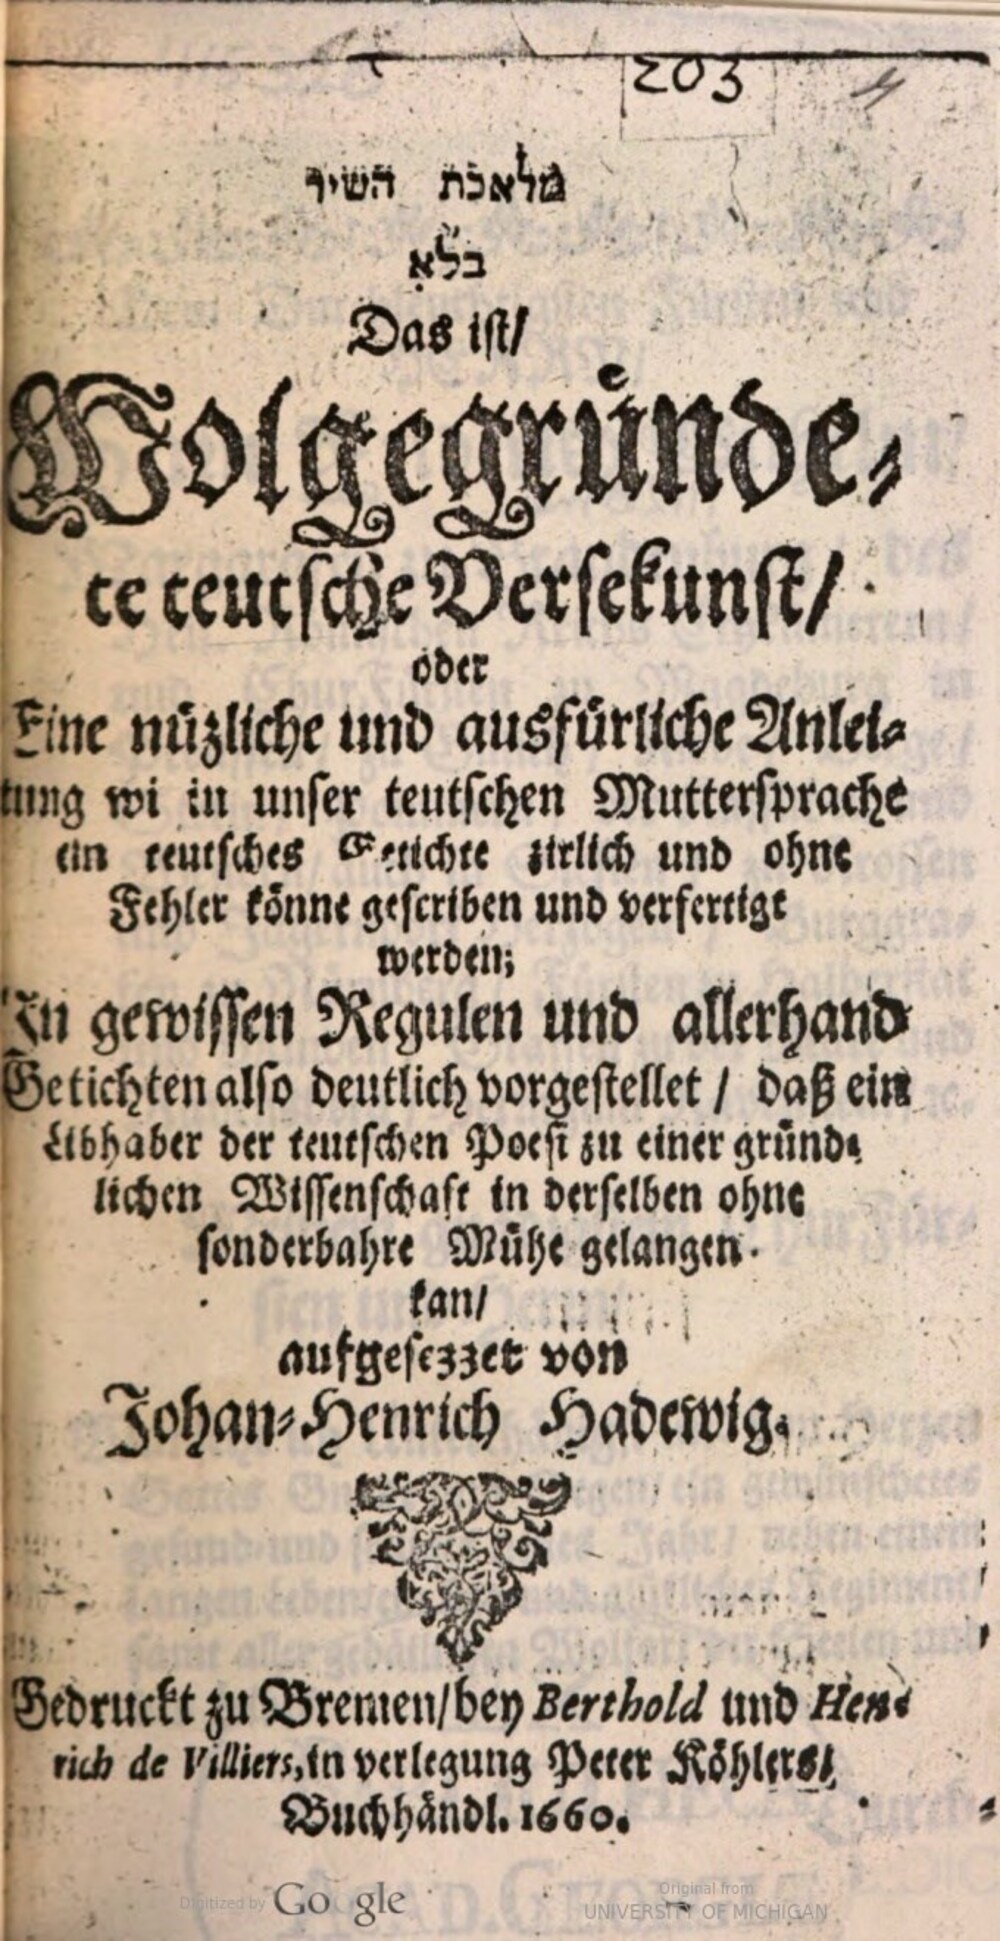 203
מלאכת השיר
בל״א
Das ist/
Wolgegründe-
te teutsche Versekunst/
oder
Eine nüzliche und ausfürliche Anlei-
tung wi in unser teutschen Muttersprache
ein teutsches Getichte zirlich und ohne
Fehler könne gescriben und verfertigt
werden;
In gewissen Regulen und allerhand
Getichten also deutlich vorgestellet / daß ein
Libhaber der teutschen Poesi zu einer gründ-
lichen Wissenschaft in derselben ohne
sonderbahre Mühe gelangen
kan/
aufgesezzet von
Johan-Henrich Hadewig.
Gedruckt zu Bremen/bey Berthold und Hen-
rich de Villiers, in verlegung Peter Köhlers/
Buchhändl. 1660.
Digitized by Google
Original from
UNIVERSITY OF MICHIGAN